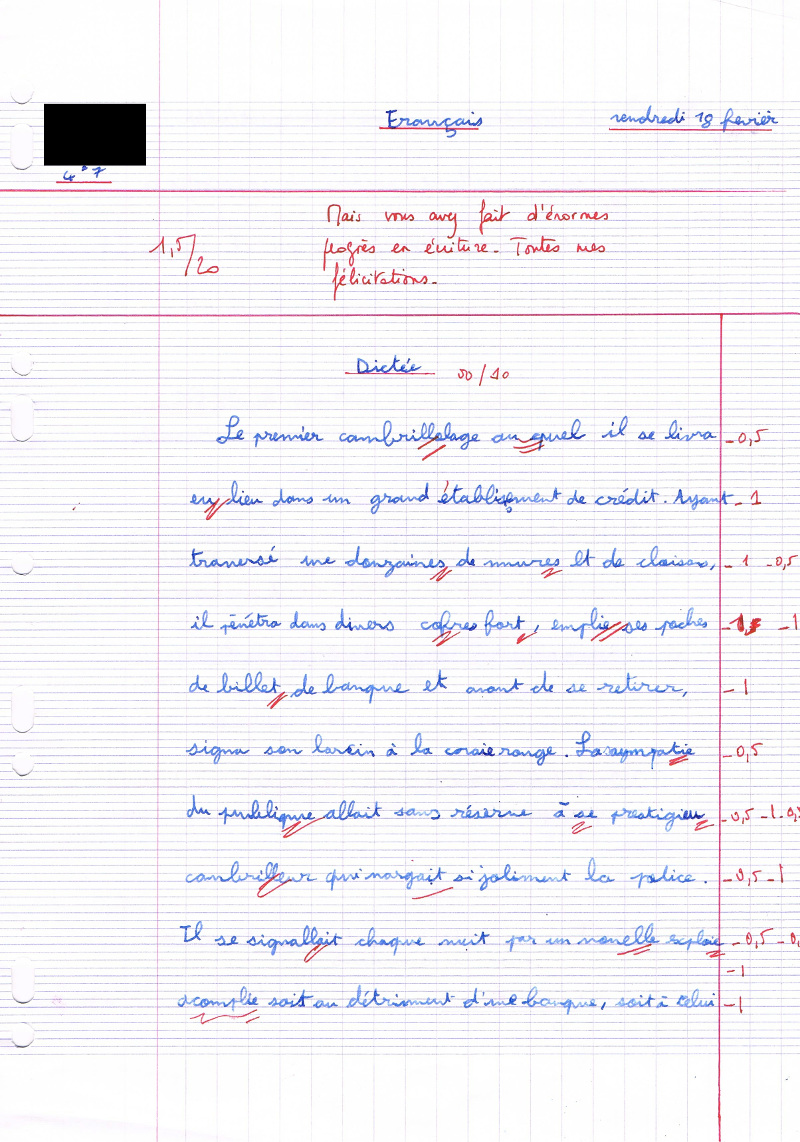 Français
vendredi 18 fevrier
4° 7
1,5/20
Mais vous avez fait d'énormes
progrès en écriture. Toutes mes
félicitations.
Dictée
00/10
Le premier cambrillolage au quel il se livra -0,5
eu lieu dans un grand établisement de crédit. Ayant -1
traversé une douzaines de mures et de cloisons, -1 -0,5
il pénétra dans divers cofres fort, emplie ses poches -1 -1
de billet de banque et avant de se retirer, -1
signa son larcin à la craie rouge. La sympatie -0,5
du publique allait sans réserve à se prestigieu -0,5 -1 -0,5
cambrilleur qui nargait si joliment la police. -0,5 -1
Il se signallait chaque nuit par un nouvelle exploie -0,5 -0,
-1
acomplie soit au détriment d'une banque, soit à celui -1